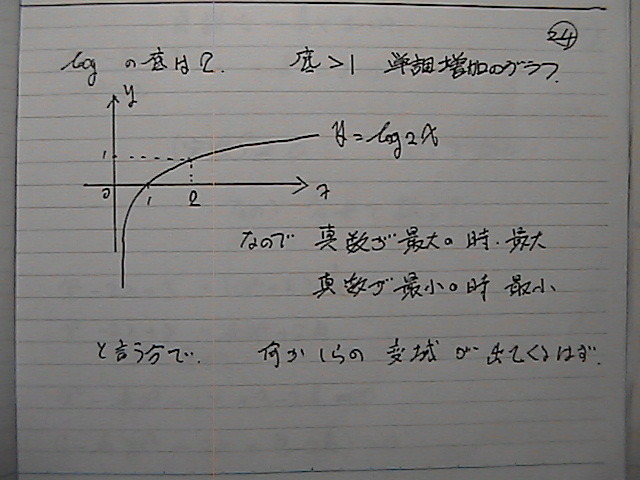 24
log の底は2. 底>1 単調増加のグラフ.
y
y=log2x
1
0 1 2 x
なので 真数が最大の時.最大
真数が最小の時 最小
と言う分で. 何かしらの変域が出てくるはず.